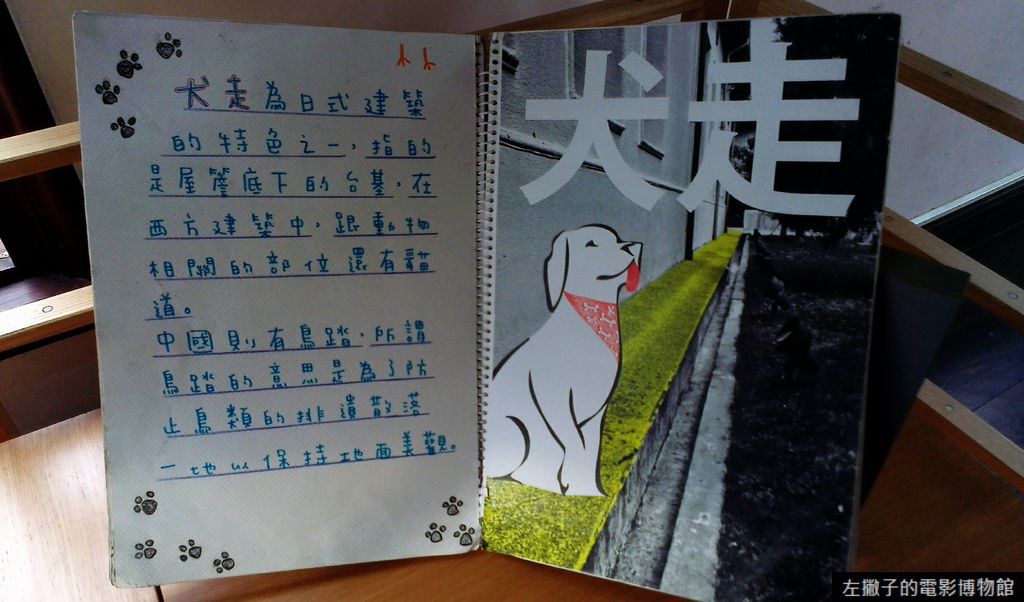 犬走為日式建築
的特色之一，指的
是屋簷底下的台基，在
西方建築中，跟動物
相關的部位還有貓
道。
中國則有鳥踏，所謂
鳥踏的意思是為了防
止鳥類的排遺散落
一地以保持地面美觀。
犬走
左撇子的電影博物館